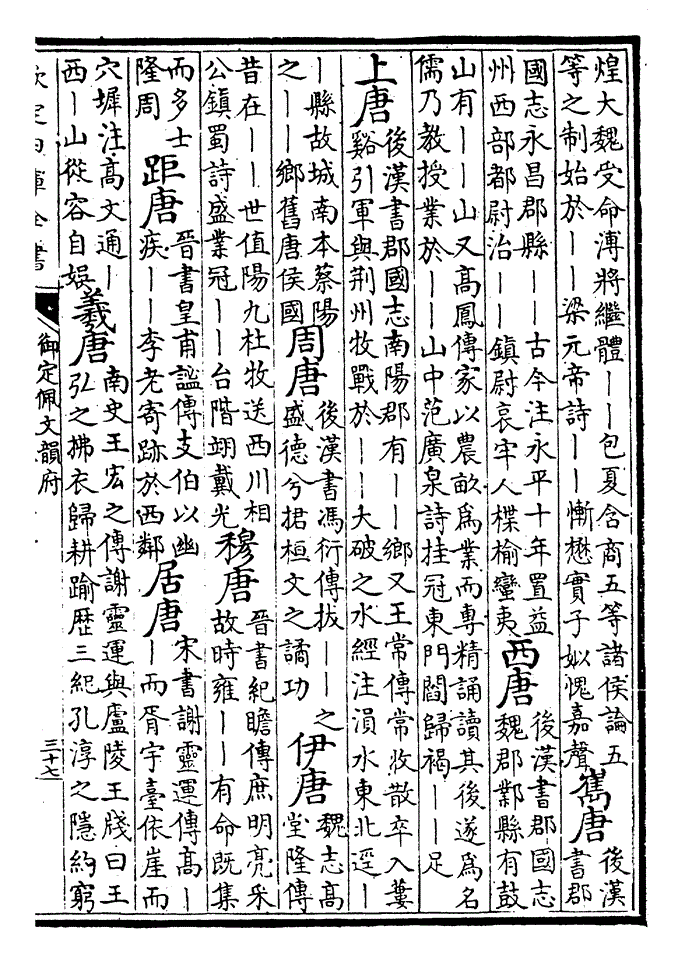 煌大魏受命溥將繼體——包夏含商五等諸侯論五
等之制始於——梁元帝詩——慚懋實子姒愧嘉聲
巂唐
後漢
書郡
國志永昌郡縣——古今注永平十年置益
州西部都尉治——鎮尉哀牢人楪榆蠻夷
西唐
後漢書郡國志
魏郡鄴縣有鼓
山有——山又高鳳傳家以農畝為業而專精誦讀其後遂為名
儒乃教授業於——山中范廣泉詩挂冠東門閻歸褐——足
上唐
後漢書郡國志南陽郡有——鄉又王常傳常收散卒入蔞
谿引軍與荆州牧戰於——大破之水經注溳水東北逕—
—縣故城南本蔡陽
之——鄉舊唐侯國
周唐
後漢書馮衍傳拔——之
盛德兮捃桓文之譎功
伊唐
魏志高
堂隆傳
昔在——世值陽九杜牧送西川相
公鎮蜀詩盛業冠——台階翊戴光
穆唐
晉書紀瞻傳庶明亮采
故時雍——有命既集
而多士
隆周
距唐
晉書皇甫謐傳支伯以幽
疾——李老寄跡於西鄰
居唐
宋書謝靈運傳高—
—而胥宇臺依崖而
穴墀注高文通—
西—山從容自娛
羲唐
南史王宏之傳謝靈運與廬陵王牋曰王
弘之拂衣歸耕踰歷三紀孔淳之隱約窮
欽定四庫全書
御定佩文韻府
三十七